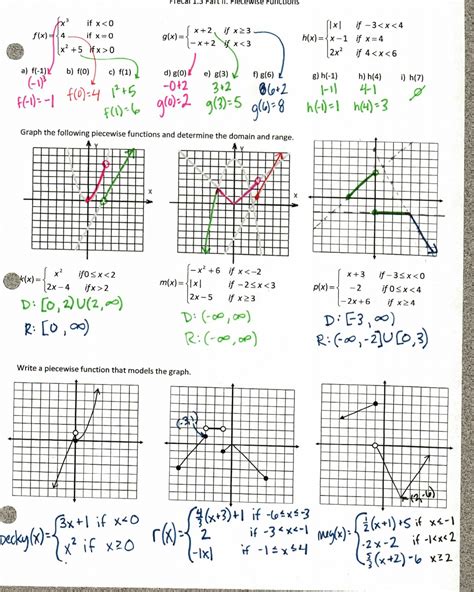 Precal 1.3 Part II: Piecewise Functions
f(x)= { x³ if x<0
4 if x=0
x²+5 if x>0
g(x)= { x+2, if x≥3
-x+2 if x<3
h(x)= { |x| if -3<x<4
x-1 if x=4
2x² if 4<x<6
a) f(-1) b) f(0) c) f(1) d) g(0) e) g(3) f) g(6) g) h(-1) h) h(4) i) h(7)
(-1)³
f(-1)=-1
f(0)=4
1²+5
f(1)=6
-0+2
g(0)=2
3+2
g(3)=5
6+2
g(6)=8
|-1|
h(-1)=1
4-1
h(4)=3
∅
Graph the following piecewise functions and determine the domain and range.
Y
X
Y
X
X
k(x)= { x² if 0≤x<2
2x-4 if x>2
m(x)= { -x²+6 if x<-2
|x| if -2≤x<3
2x-5 if x≥3
p(x)= { x+3 if -3≤x<0
-2 if 0≤x<4
-2x+6 if x≥4
D: [0,2)∪(2,∞)
R: [0,∞)
D: (-∞,∞)
R: (-∞,∞)
D: [-3,∞)
R: (-∞,-2]∪[0,3)
Write a piecewise function that models the graph.
(-3,1)
(2,-6)
Becky(x)= { 3x+1 if x<0
x² if x≥0
r(x)= { 4/3(x+3)+1 if -6≤x≤-3
2 if -3<x<-1
-|x| if -1≤x≤4